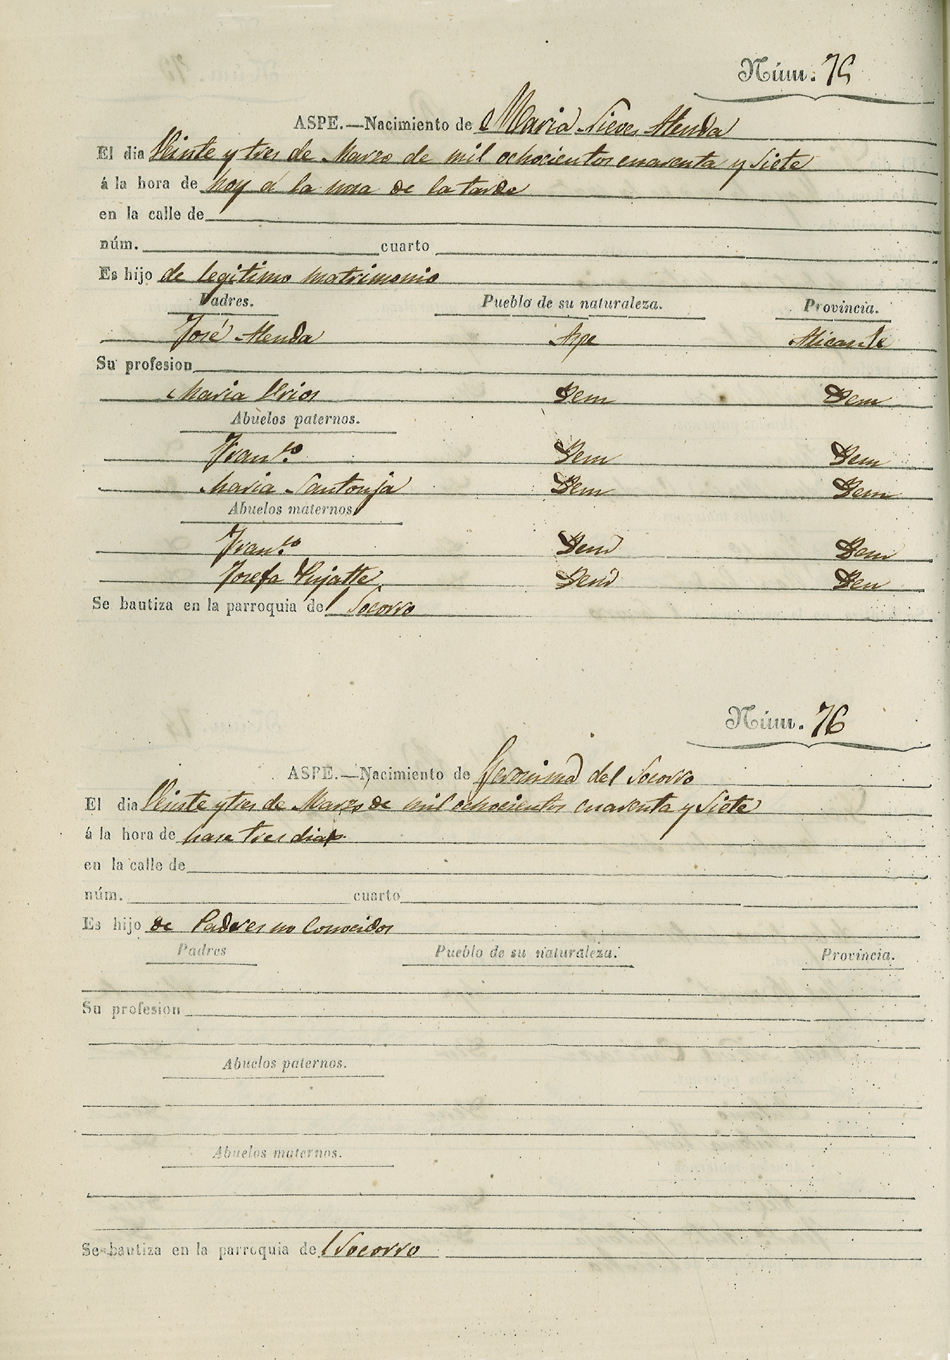 Núm. 75
ASPE.—Nacimiento de Maria Nieves Alenda
El dia Veinte y tres de Marzo de mil ochocientos cuarenta y Siete
á la hora de hoy á la una de la tarde
en la calle de
núm. cuarto
Es hijo de legitimo matrimonio
Padres. Pueblo de su naturaleza. Provincia.
José Alenda Aspe Alicante
Su profesion
Maria Urios Idem Idem
Abuelos paternos.
Franco. Idem Idem
Maria Santonja Idem Idem
Abuelos maternos
Franco. Idem Idem
Josefa Idem Idem
Se bautiza en la parroquia de Socorro
Núm. 76
ASPE.—Nacimiento de Geronima del Socorro
El dia Veinte y tres de Marzo de mil ochocientos cuarenta y Siete
á la hora de hase tres dias
en la calle de
núm. cuarto
Es hijo de Padres no Conocidos
Padres Pueblo de su naturaleza. Provincia.
Su profesion
Abuelos paternos.
Abuelos maternos.
Se bautiza en la parroquia de Socorro